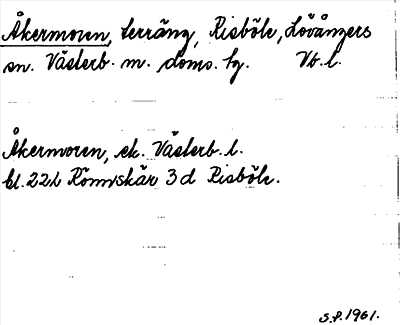 Åkermoren, terräng, Risböle, Lövångers
sn. Västerb. m. doms. tg. Vb. l.
Åkermoren, ek. Västerb. l.
bl. 22L Rönnskär 3 d Risböle.
S.P. 1961.